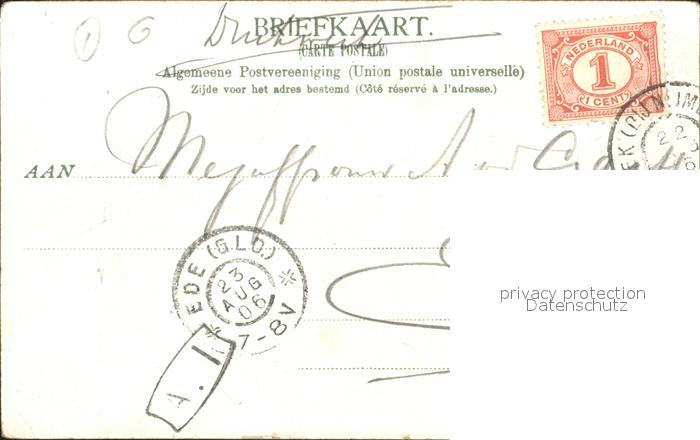 1 6 Drukwerk
BRIEFKAART.
(CARTE POSTALE)
Algemeene Postvereeniging (Union postale universelle)
Zijde voor het adres bestemd (Côté réservé à l'adresse.)
NEDERLAND
1
(1 CENT)
22
AAN Mejuffrouw A
EDE (GLD.)
23
AUG
06
7-8V
A. 1
privacy protection
Datenschutz